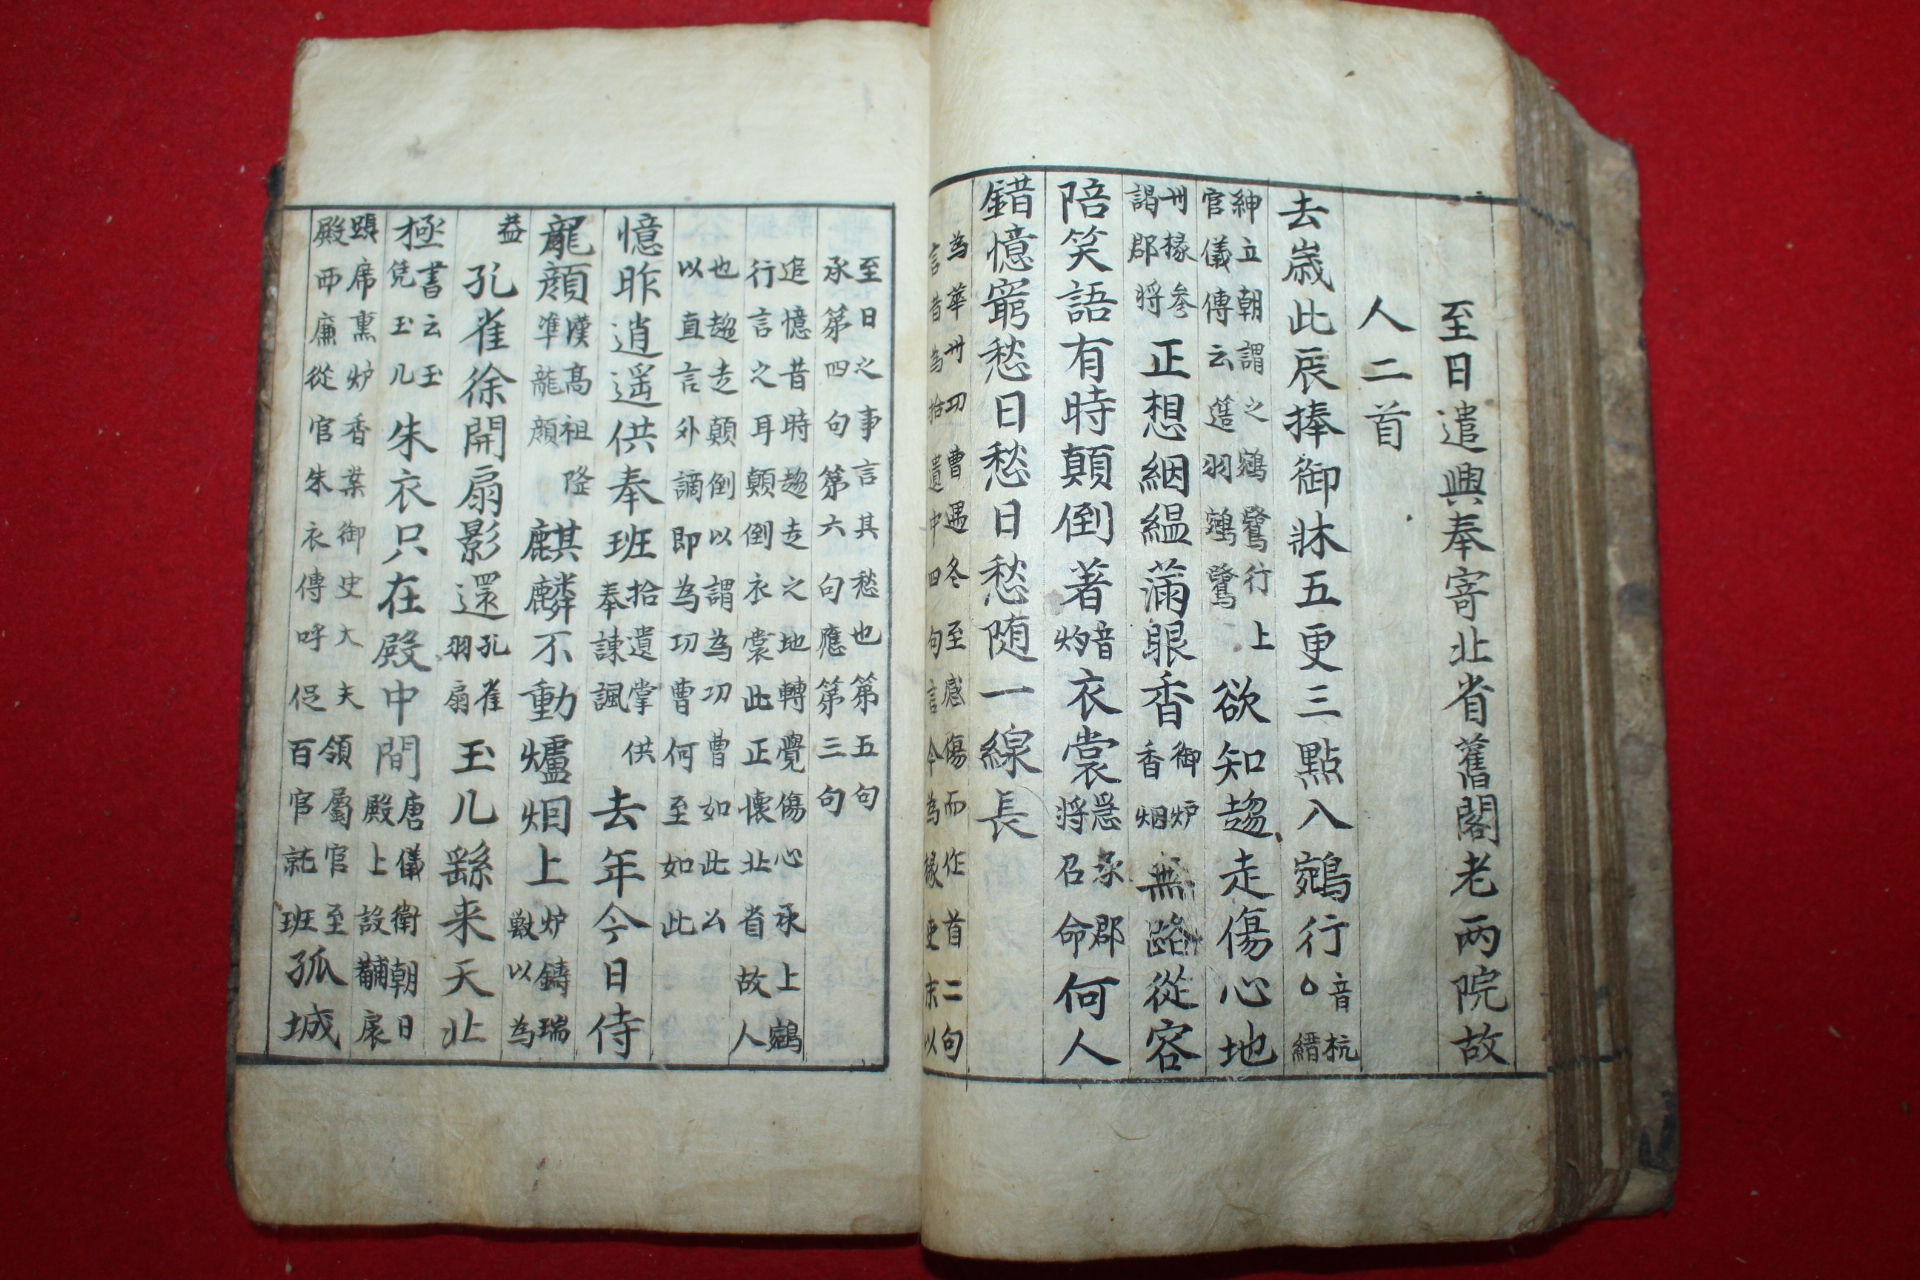 至日遣興奉寄北省舊閣老兩院故
人二首
去歲此辰捧御牀五更三點入鵷行音杭
紳立朝謂之鵷鷺行上
官儀傳云簉羽鵷鷺
欲知趨走傷心地
州掾參
謁郡將
正想絪縕滿眼香
御炉
香烟
無路從容
陪笑語有時顛倒著
衣裳
急承郡
將召命
何人
錯憶窮愁日愁日愁隨一線長
為華州功曹遇冬至感傷而作首二句
言昔為拾遺中四句言今為掾更末以
至日之事言其愁也第五句
承第四句第六句應第三句
追憶昔時趨走之地轉覺傷心承上鵷
行言之耳顛倒衣裳此正懷北省故人
也趨走顛倒以謂為功曹如此公
以直言外謫即為功曹何至如此
憶昨逍遥供奉班
拾遺掌供
奉諫諷
去年今日侍
龍顔
漢高祖隆
準龍顔
麒麟不動爐烟上
炉鑄瑞
獸以為
益
孔雀徐開扇影還
孔雀
羽扇
玉几繇来天北
極
書云玉
凭玉几
朱衣只在殿中間
唐儀衛朝日
殿上設黼扆
躡席熏炉香案御史大夫領屬官至
殿西廉從官朱衣傳呼促百官就班
孤城